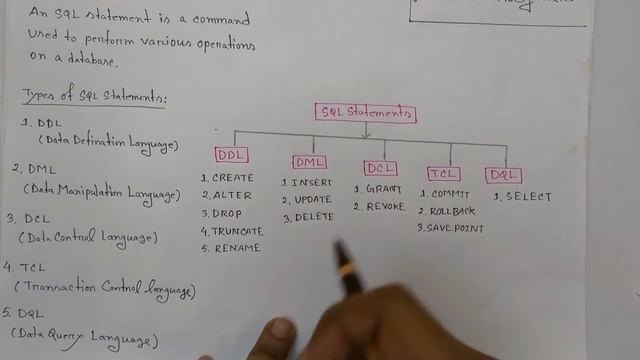 An SQL statement is a command
used to perform various operations
on a database.
Types of SQL Statements:
1. DDL
(Data Defination Language)
2. DML
(Data Manipulation Language)
3. DCL
(Data Control Language)
4. TCL
(Transaction Control language)
5. DQL
(Data Query Language)
SQL Statements
DDL
1. CREATE
2. ALTER
3. DROP
4. TRUNCATE
5. RENAME
DML
1. INSERT
2. UPDATE
3. DELETE
DCL
1. GRANT
2. REVOKE
TCL
1. COMMIT
2. ROLLBACK
3. SAVE POINT
DQL
1. SELECT